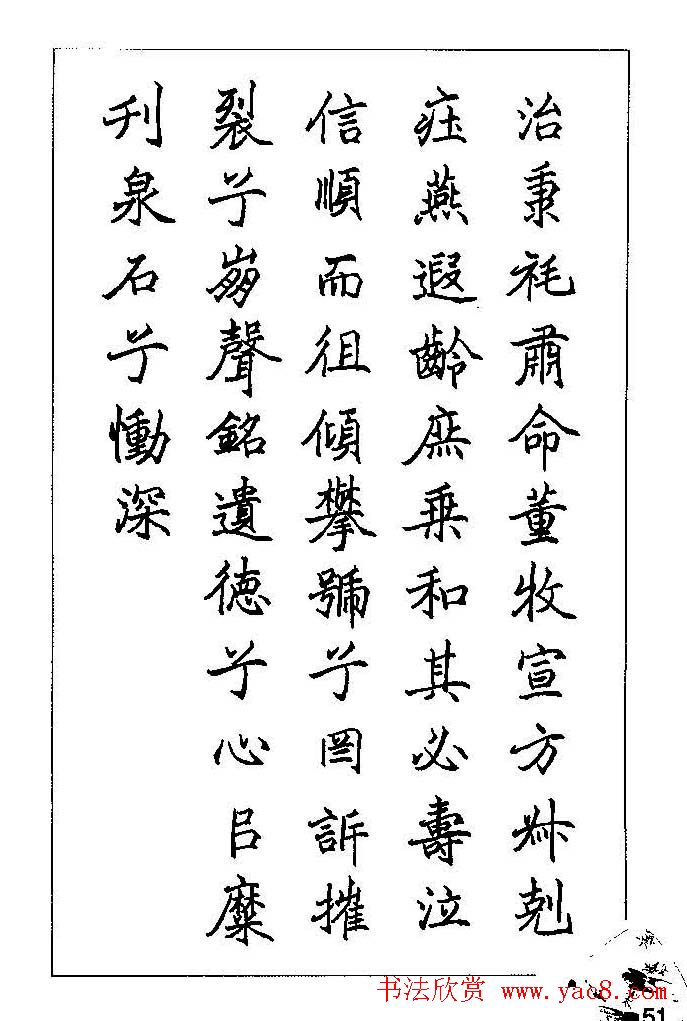 治秉肅命董牧宣方叔剋
莊燕遐齡庶乗和其必壽泣
信順而徂傾攀號兮罔訴摧
裂兮崩聲銘遺德兮心㠯糜
刊泉石兮慟深
书法欣赏 www.yac8.com
51